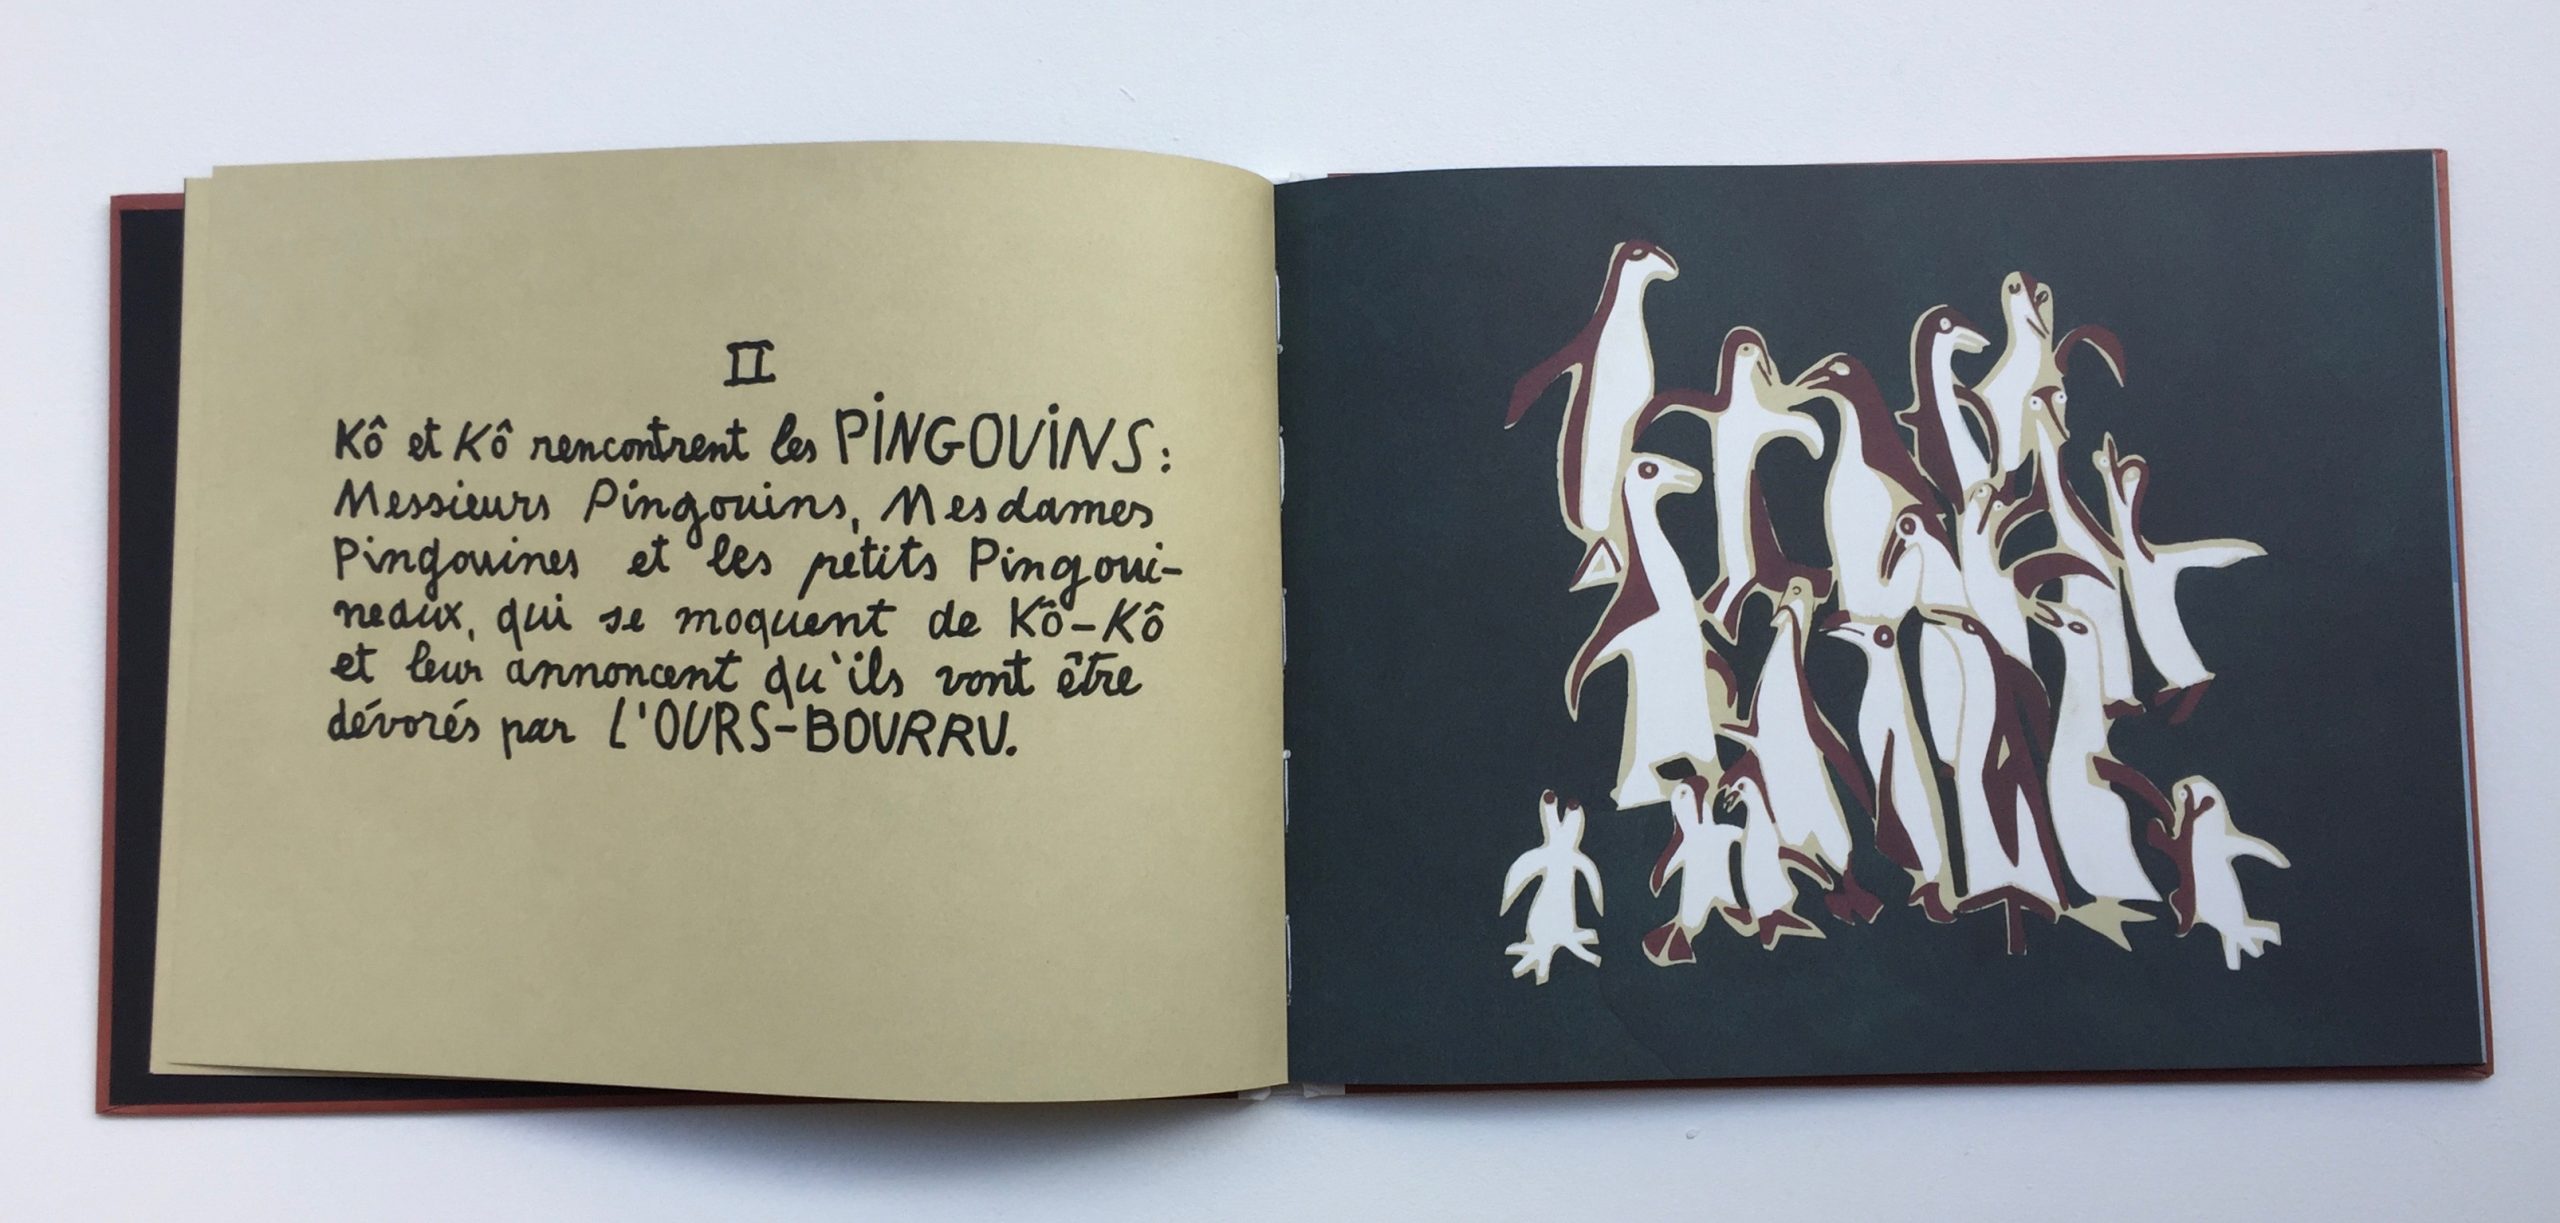 II
Kô et Kô rencontrent les PiNGOUiNS :
Messieurs Pingouins, Mesdames
Pingouines et les petits Pingoui-
neaux, qui se moquent de Kô-Kô
et leur annoncent qu'ils vont être
dévorés par L'OURS-BOURRU.